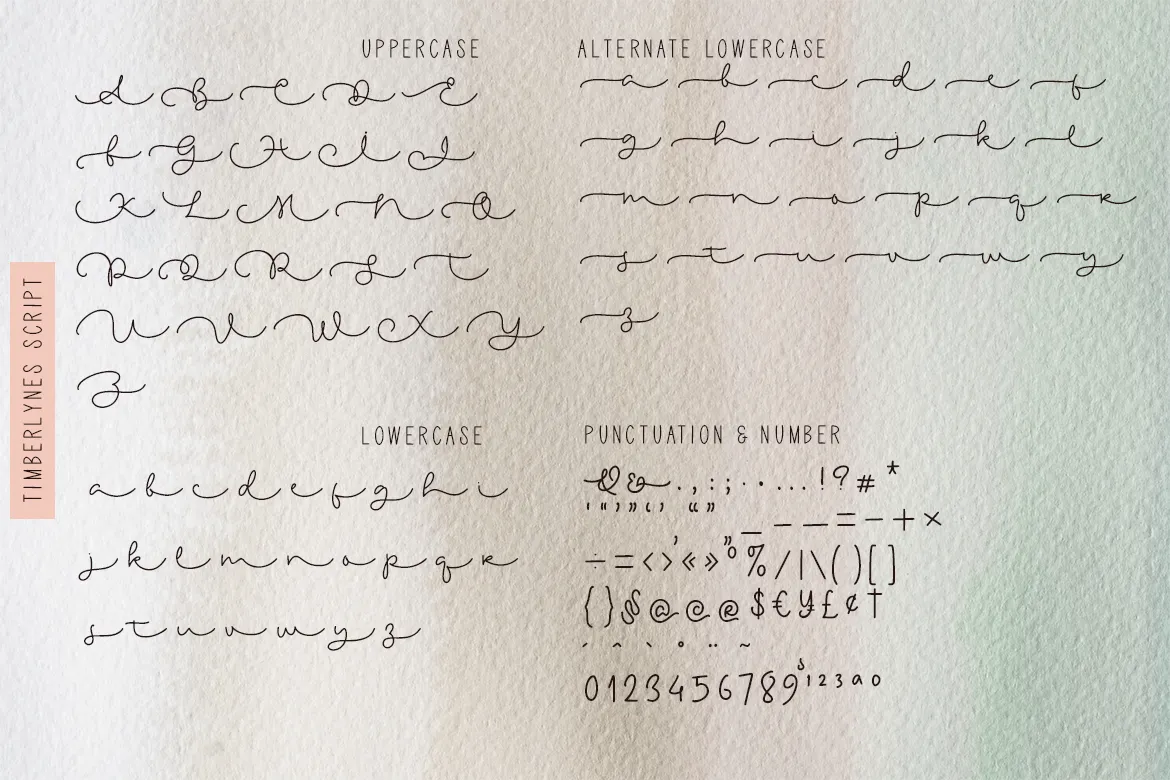 TIMBERLYNES SCRIPT
UPPERCASE
A B C D E
F G H I J
K L M N O
P Q R S T
U V W X Y
Z
LOWERCASE
a b c d e f g h i
j k l m n o p q r
s t u v w x y z
ALTERNATE LOWERCASE
a b c d e f
g h i j k l
m n o p q r
s t u v w y
z
PUNCTUATION & NUMBER
& . , : ; · • ... ! ? # *
' " ’ ” ‘ ’ “ ”
_ – — = - + ×
÷ = < > ' « » " ° % / | \ ( ) [ ]
{ } § @ © ® $ € ¥ £ ¢ †
´ ^ ` ° ¨ ~
0 1 2 3 4 5 6 7 8 9 1 2 3 a o